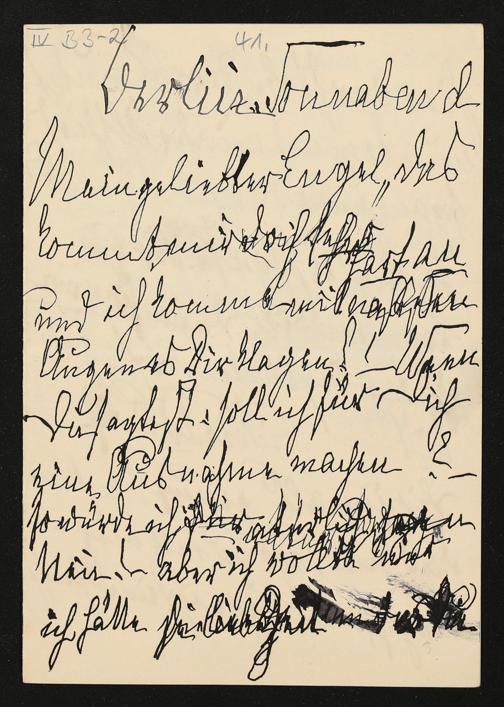 IV B3-2
41.
Berlin. Sonnabend
Mein geliebter Engel, das
kommt mir doch sehr
hart an
und ich komme mit nassen
Augen es Dir klagen! ! Wenn
Du sagtest: soll ich für Dich
eine Ausnahme machen ?
so würde ich
Nein! aber ich wollte nur
ich hätte